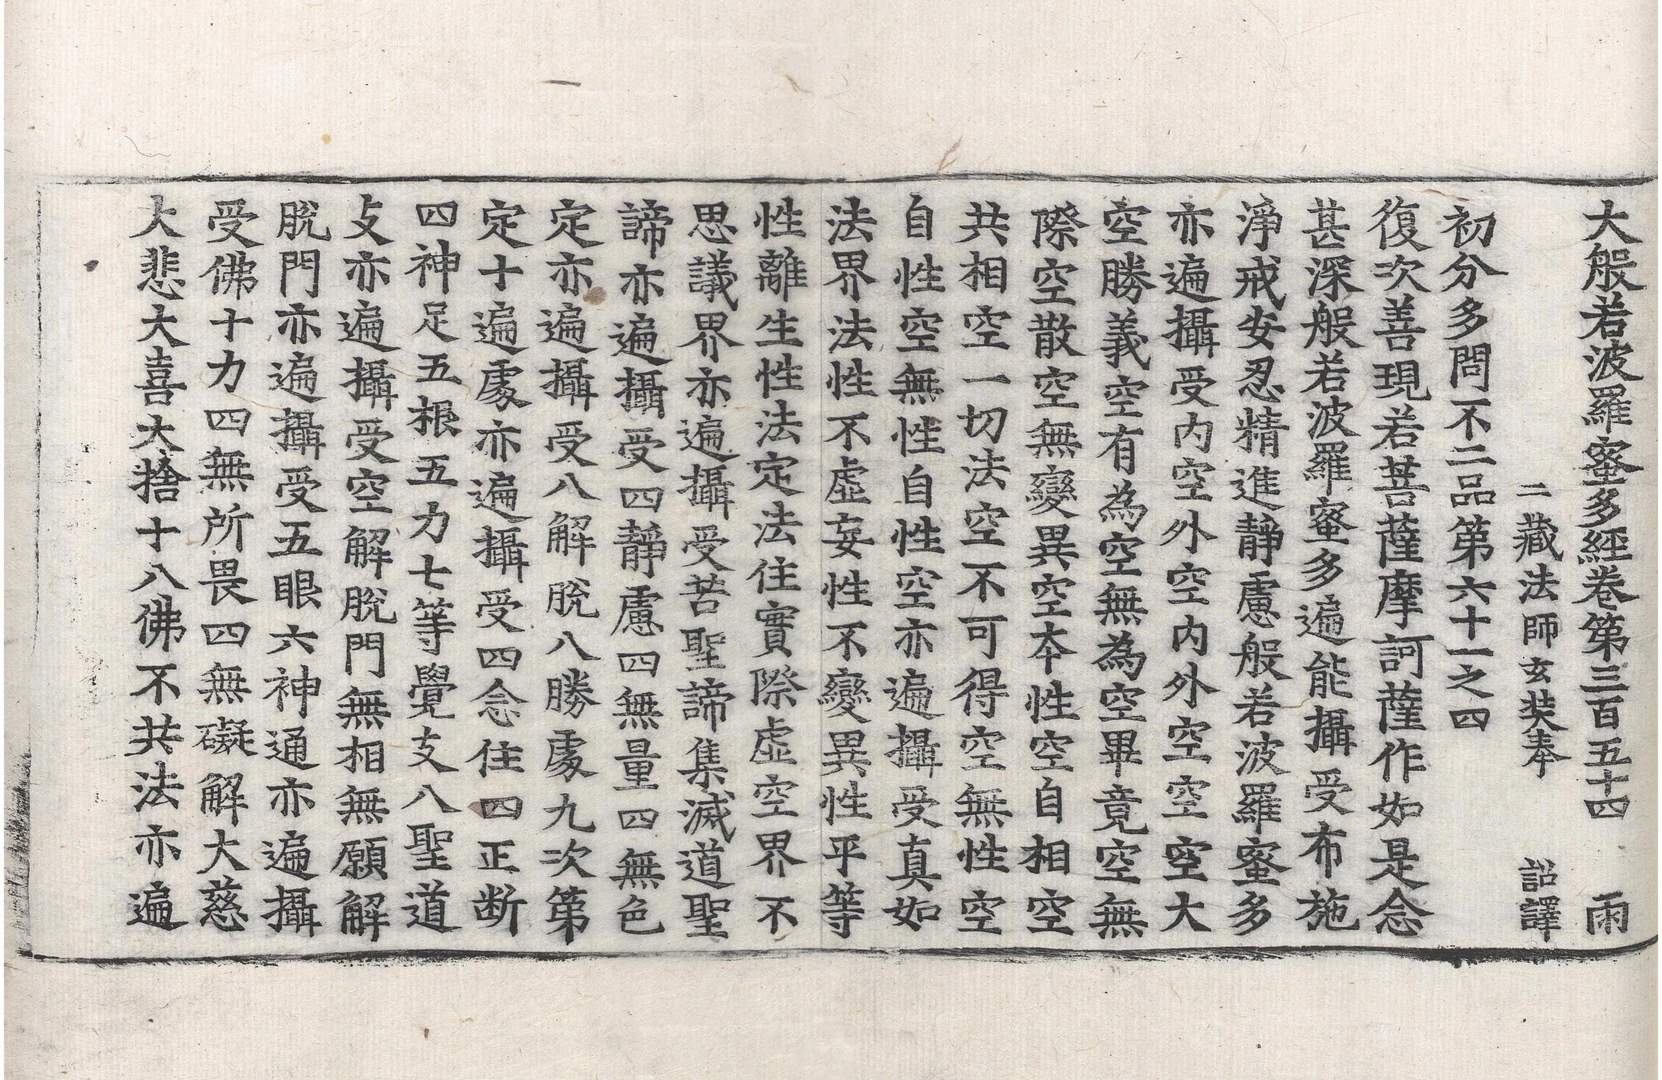 大般若波羅蜜多經卷第三百五十四　雨
二藏法師玄奘奉　詔譯
初分多問不二品第六十一之四
復次善現若菩薩摩訶薩作如是念
甚深般若波羅蜜多遍能攝受布施
淨戒安忍精進靜慮般若波羅蜜多
亦遍攝受內空外空內外空空空大
空勝義空有為空無為空畢竟空無
際空散空無變異空本性空自相空
共相空一切法空不可得空無性空
自性空無性自性空亦遍攝受真如
法界法性不虛妄性不變異性平等
性離生性法定法住實際虛空界不
思議界亦遍攝受苦聖諦集滅道聖
諦亦遍攝受四靜慮四無量四無色
定亦遍攝受八解脫八勝處九次第
定十遍處亦遍攝受四念住四正斷
四神足五根五力七等覺支八聖道
支亦遍攝受空解脫門無相無願解
脫門亦遍攝受五眼六神通亦遍攝
受佛十力四無所畏四無礙解大慈
大悲大喜大捨十八佛不共法亦遍